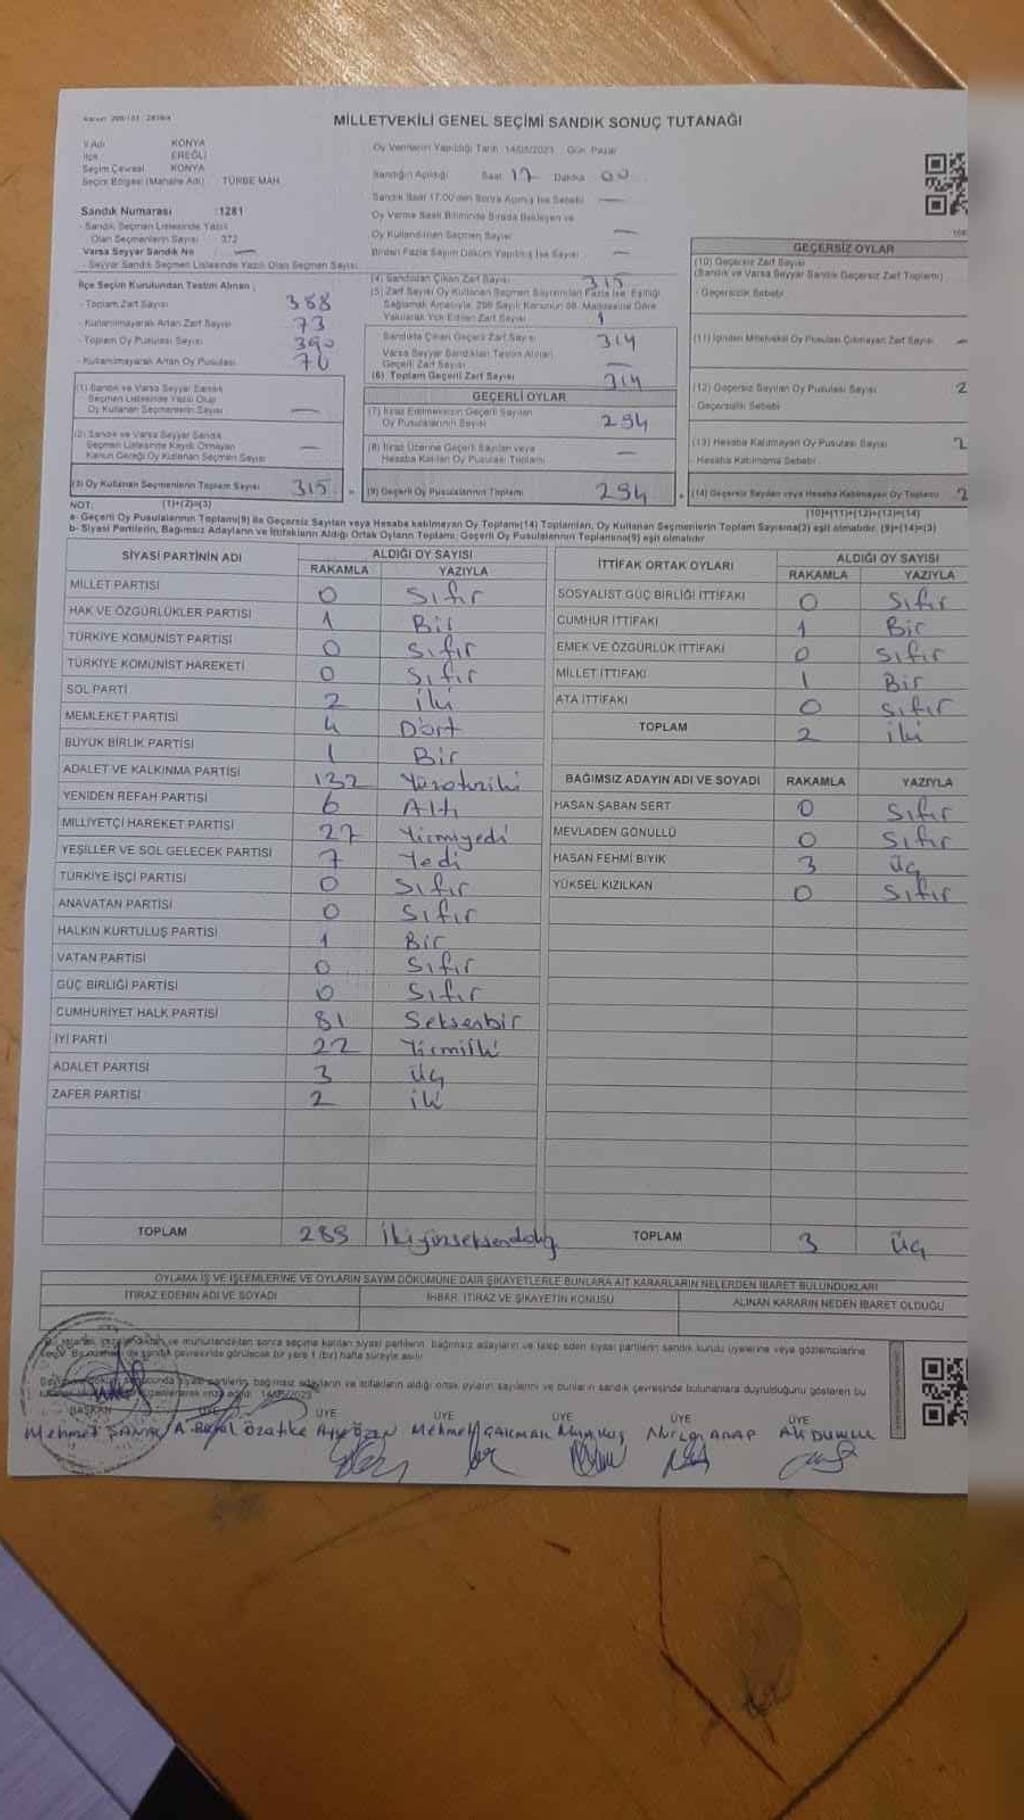 MİLLETVEKİLİ GENEL SEÇİMİ SANDIK SONUÇ TUTANAĞI
İl Adı KONYA
İlçe EREĞLİ
Seçim Çevresi KONYA
Seçim Bölgesi (Mahalle Adı) TÜRBE MAH.
Oy Vermenin Yapıldığı Tarih 14/05/2023 Gün Pazar
Sandığın Açıldığı Saat 17 Dakika 00
Sandık Saat 17.00'den Sonra Açılmış İse Sebebi —
Oy Verme Saati Bitiminde Sırada Bekleyen ve
Oy Kullandırılan Seçmen Sayısı —
Birden Fazla Sayım Döküm Yapılmış İse Sayısı —
Sandık Numarası :1281
- Sandık Seçmen Listesinde Yazılı
Olan Seçmenlerin Sayısı : 372
Varsa Seyyar Sandık No —
- Seyyar Sandık Seçmen Listesinde Yazılı Olan Seçmen Sayısı
İlçe Seçim Kurulundan Teslim Alınan ;
- Toplam Zarf Sayısı 388
- Kullanılmayarak Artan Zarf Sayısı 73
- Toplam Oy Pusulası Sayısı 390
- Kullanılmayarak Artan Oy Pusulası
(1) Sandık ve Varsa Seyyar Sandık
Seçmen Listesinde Yazılı Olup
Oy Kullanan Seçmenlerin Sayısı —
(2) Sandık ve Varsa Seyyar Sandık
Seçmen Listesinde Kaydı Olmayan
Kanun Gereği Oy Kullanan Seçmen Sayısı —
(3) Oy Kullanan Seçmenlerin Toplam Sayısı 315
(1)+(2)=(3)
(4) Sandıktan Çıkan Zarf Sayısı 315
(5) Zarf Sayısı Oy Kullanan Seçmen Sayısından Fazla İse, Eşitliği
Sağlamak Amacıyla, 298 Sayılı Kanunun 98. Maddesine Göre
Yakılarak Yok Edilen Zarf Sayısı 1
Sandıkta Çıkan Geçerli Zarf Sayısı 314
Varsa Seyyar Sandıktan Teslim Alınan
Geçerli Zarf Sayısı —
(6) Toplam Geçerli Zarf Sayısı 314
GEÇERLİ OYLAR
(7) İtiraz Edilmeksizin Geçerli Sayılan
Oy Pusulalarının Sayısı 294
(8) İtiraz Üzerine Geçerli Sayılan veya
Hesaba Katılan Oy Pusulası Toplamı —
(9) Geçerli Oy Pusulalarının Toplamı 294
GEÇERSİZ OYLAR
(10) Geçersiz Zarf Sayısı
(Sandık ve Varsa Seyyar Sandık Geçersiz Zarf Toplamı)
- Geçersizlik Sebebi
(11) İçinden Milletvekili Oy Pusulası Çıkmayan Zarf Sayısı —
(12) Geçersiz Sayılan Oy Pusulası Sayısı 2
- Geçersizlik Sebebi
(13) Hesaba Katılmayan Oy Pusulası Sayısı 2
- Hesaba Katılmama Sebebi
(14) Geçersiz Sayılan veya Hesaba Katılmayan Oy Toplamı 2
(10)+(11)+(12)+(13)=(14)
NOT:
a- Geçerli Oy Pusulalarının Toplamı(9) ile Geçersiz Sayılan veya Hesaba katılmayan Oy Toplamı(14) Toplamları, Oy Kullanan Seçmenlerin Toplam Sayısına(3) eşit olmalıdır. (9)+(14)=(3)
b- Siyasi Partilerin, Bağımsız Adayların ve İttifakların Aldığı Ortak Oyların Toplamı, Geçerli Oy Pusulalarının Toplamına(9) eşit olmalıdır
SİYASİ PARTİNİN ADI ALDIĞI OY SAYISI
RAKAMLA YAZIYLA
MİLLET PARTİSİ 0 Sıfır
HAK VE ÖZGÜRLÜKLER PARTİSİ 1 Bir
TÜRKİYE KOMÜNİST PARTİSİ 0 Sıfır
TÜRKİYE KOMÜNİST HAREKETİ 0 Sıfır
SOL PARTİ 2 iki
MEMLEKET PARTİSİ 4 Dört
BÜYÜK BİRLİK PARTİSİ 1 Bir
ADALET VE KALKINMA PARTİSİ 132 Yüzotuziki
YENİDEN REFAH PARTİSİ 6 Altı
MİLLİYETÇİ HAREKET PARTİSİ 27 Yirmiyedi
YEŞİLLER VE SOL GELECEK PARTİSİ 7 Yedi
TÜRKİYE İŞÇİ PARTİSİ 0 Sıfır
ANAVATAN PARTİSİ 0 Sıfır
HALKIN KURTULUŞ PARTİSİ 1 Bir
VATAN PARTİSİ 0 Sıfır
GÜÇ BİRLİĞİ PARTİSİ 0 Sıfır
CUMHURİYET HALK PARTİSİ 81 Seksenbir
İYİ PARTİ 22 Yirmiiki
ADALET PARTİSİ 3 üç
ZAFER PARTİSİ 2 iki
TOPLAM 289 ikiyüzseksendokuz
İTTİFAK ORTAK OYLARI ALDIĞI OY SAYISI
RAKAMLA YAZIYLA
SOSYALİST GÜÇ BİRLİĞİ İTTİFAKI 0 Sıfır
CUMHUR İTTİFAKI 1 Bir
EMEK VE ÖZGÜRLÜK İTTİFAKI 0 Sıfır
MİLLET İTTİFAKI 1 Bir
ATA İTTİFAKI 0 Sıfır
TOPLAM 2 iki
BAĞIMSIZ ADAYIN ADI VE SOYADI RAKAMLA YAZIYLA
HASAN ŞABAN SERT 0 Sıfır
MEVLADEN GÖNÜLLÜ 0 Sıfır
HASAN FEHMİ BIYIK 3 üç
YÜKSEL KIZILKAN 0 Sıfır
TOPLAM 3 üç
OYLAMA İŞ VE İŞLEMLERİNE VE OYLARIN SAYIM DÖKÜMÜNE DAİR ŞİKAYETLERLE BUNLARA AİT KARARLARIN NELERDEN İBARET BULUNDUKLARI
İTİRAZ EDENİN ADI VE SOYADI İHBAR, İTİRAZ VE ŞİKAYETİN KONUSU ALINAN KARARIN NEDEN İBARET OLDUĞU
ve mühürlendikten sonra seçime katılan siyasi partilerin, bağımsız adayların ve talep eden siyasi partilerin sandık kurulu üyelerine veya gözlemcilerine
sandık çevresinde görülecek bir yere 1 (bir) hafta süreyle asılır
siyasi partilerin, bağımsız adayların ve ittifakların aldığı ortak oyların sayılarını ve bunların sandık çevresinde bulunanlara duyrulduğunu gösteren bu
14/05/2023
BAŞKAN ÜYE ÜYE ÜYE ÜYE ÜYE ÜYE
Mehmet Özatike Mehmet ÇAKMAK